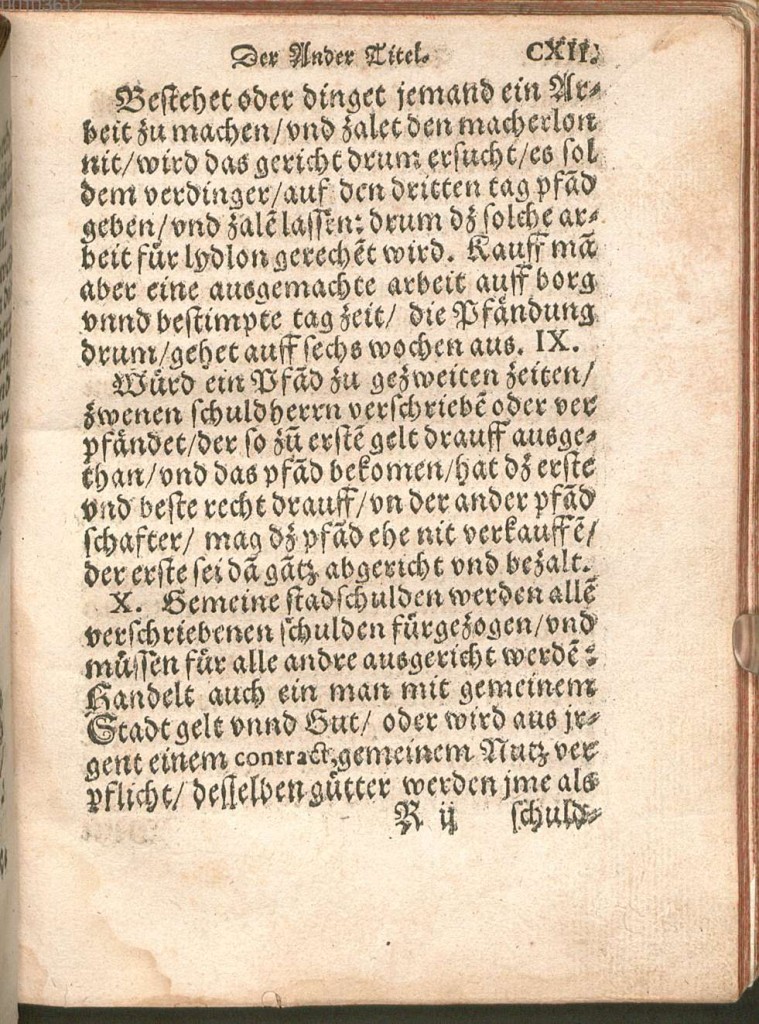 Der Ander Titel. CXII.
Bestehet oder dinget jemand ein Ar-
beit zu machen/vnd zalet den macherlon
nit/wird das gericht drum ersucht/es sol
dem verdinger/auf den dritten tag pfãd
geben/vnd zalẽ lassen: drum dz solche ar-
beit für lydlon gerechẽt wird. Kauff mã
aber eine ausgemachte arbeit auff borg
vnnd bestimpte tag zeit/ die Pfändung
drum/gehet auff sechs wochen aus. IX.
Würd ein Pfãd zu gezweiten zeiten/
zwenen schuldherrn verschriebẽ oder ver
pfändet/der so zũ erstẽ gelt drauff ausge-
than/vnd das pfãd bekomen/hat dz erste
vnd beste recht drauff/vn der ander pfãd
schafter/ mag dz pfãd ehe nit verkauffẽ/
der erste sei dã gãtz abgericht vnd bezalt.
X. Gemeine stadschulden werden allẽ
verschriebenen schulden fürgezogen/vnd
müssen für alle andre ausgericht werdẽ:
Handelt auch ein man mit gemeinem
Stadt gelt vnnd Gut/ oder wird aus jr-
gent einem contract, gemeinem Nutz ver
pflicht/ desselben gütter werden jme als
R ij schuld-